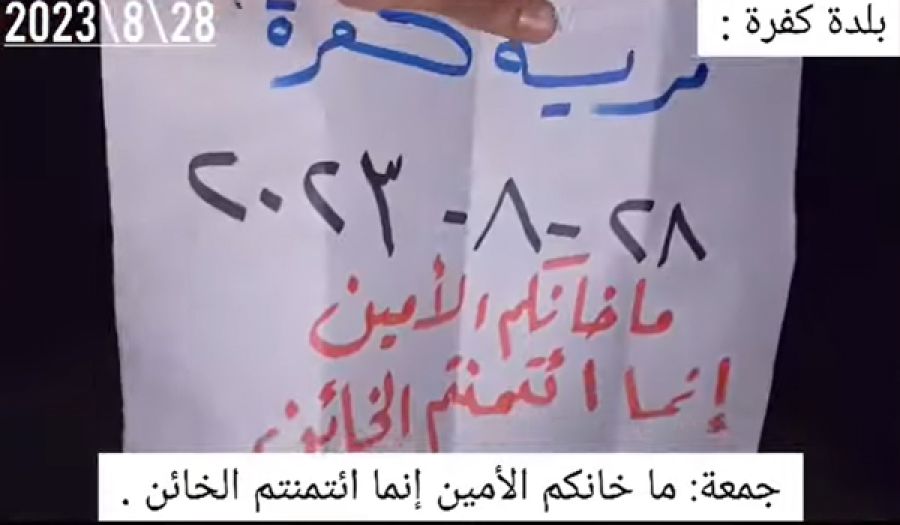 2023\8\28
بلدة كفرة :
كفرة
٢٨-٨-٢٠٢٣
ما خانكم الأمين
إنما ائتمنتم الخائن
جمعة: ما خانكم الأمين إنما ائتمنتم الخائن .